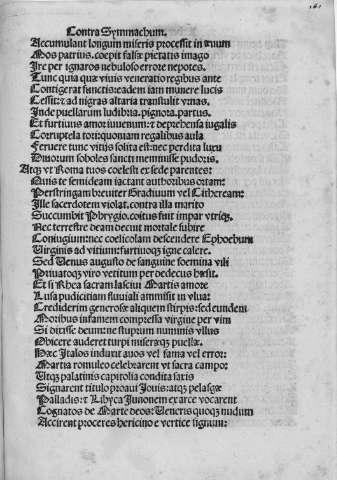 161
Contra Symmachum.
Accumulant longum miseris processit in ævum
Mos patrius. cœpit falsæ pietatis imago
Ire per ignaros nebuloso errore nepotes.
Tunc quia quæ viuis veneratio regibus ante
Contigerat functis: eadem iam munere lucis
Cessit: & ad nigras altaria transtulit vrnas.
Inde puellarum ludibria. pignora. partus.
Et furtiuus amor iuuenum: & deprehensa iugalis
Corruptela tori: quoniam regalibus aula
Feruere tunc vitijs solita est: nec perdita luxu
Diuorum soboles sancti meminisse pudoris.
Atq; vt Roma tuos cœlesti ex sede parentes:
Quis te semideam iactant authoribus ortam:
Perstringam breuiter Gradiuum vel Cithæream:
Ille sacerdotem violat. contra illa marito
Succumbit Phrygio. coitus fuit impar vtriq;.
Nec terrestre deam decuit mortale subire
Coniugium: nec cœlicolam descendere Ephœbum
Virginis ad vitium: furtiuoq; igne calere.
Sed Venus augusto de sanguine fœmina vili
Priuatoq; viro vetitum per dedecus hæsit.
Et si Rhea sacram lasciui Martis amore
Lusa pudicitiam fluuiali ammisit in vlua:
Crediderim generosæ aliquem stirpis: sed eundem
Moribus infamem compressa virgine per vim
Si dixisse deum: ne stuprum numinis vllus
Obicere auderet turpi miseræq; puellæ.
Hæc Italos induxit auos vel fama vel error:
Martia romuleo celebrarent vt sacra campo:
Utq; palatinis capitolia condita saxis
Signarent titulo proaui Iouis: atq; pelasgæ
Palladis: & Libyca Junonem ex arce vocarent
Cognatos de Marte deos: Veneris quoq; nudum
Accirent proceres hericino e vertice signum: